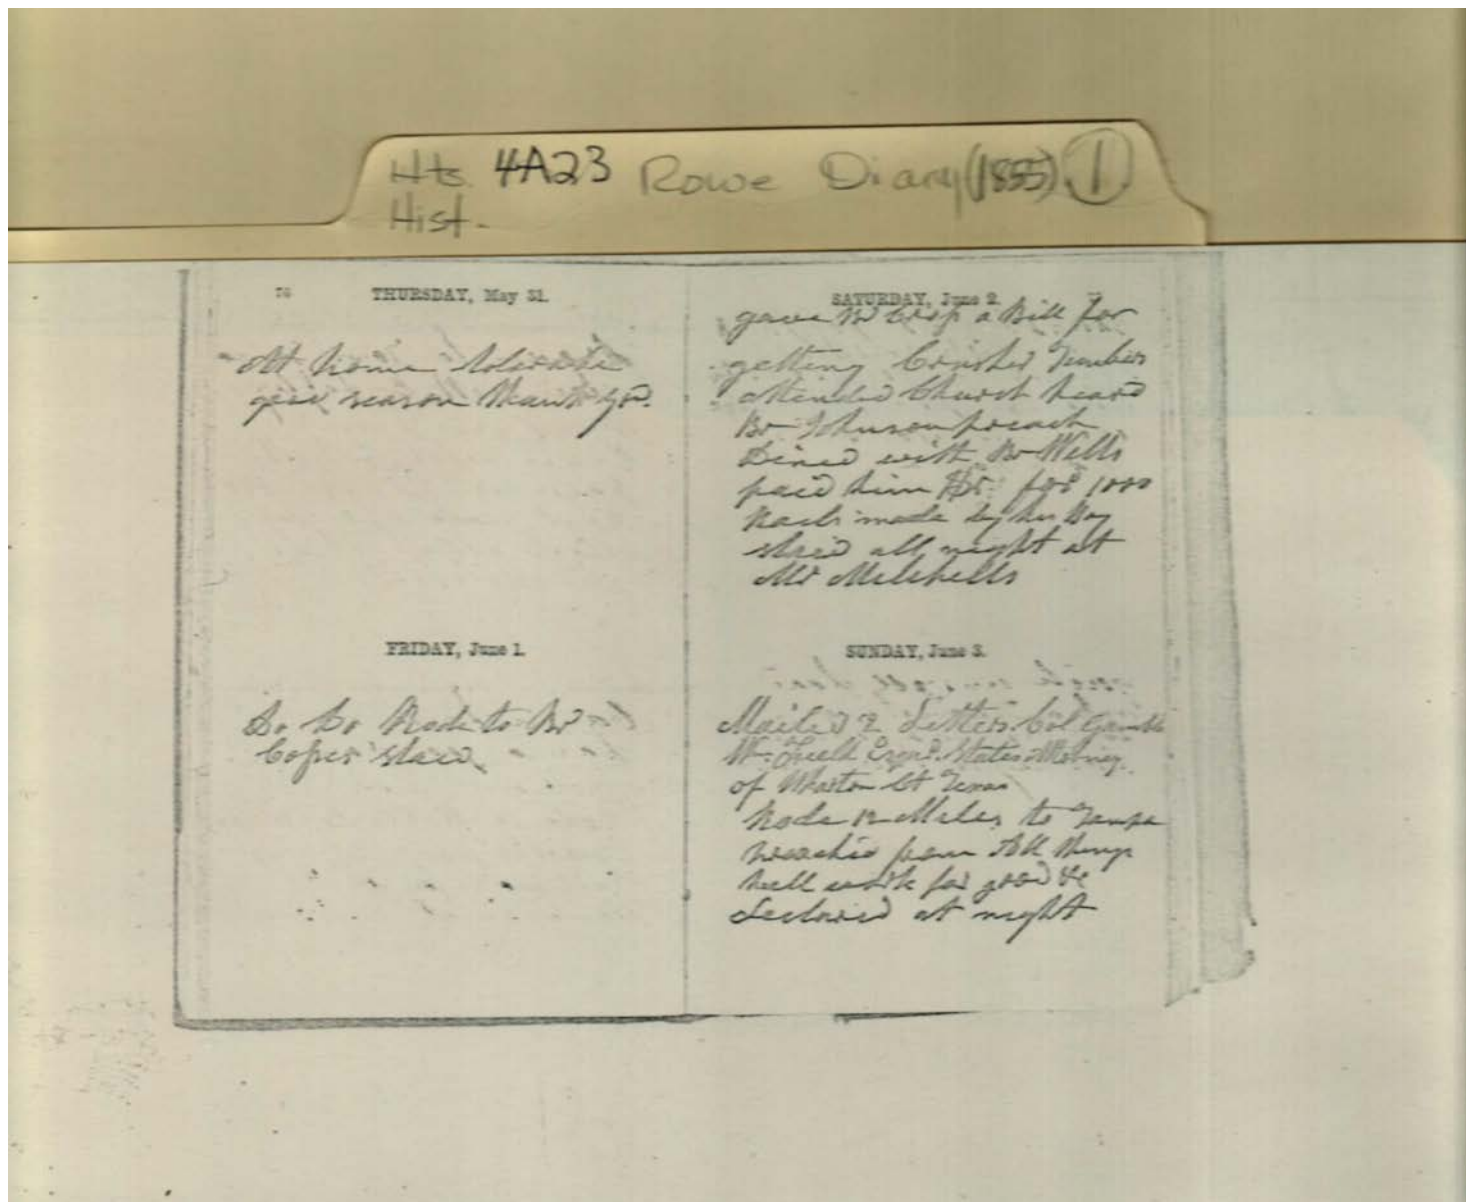 Hts. 4A23 Rowe Diary (1855) 1
Hist.
76 THURSDAY, May 31.
At home tolerable
good season Thank God.
FRIDAY, June 1.
Do Do Rode to Br
staid
SATURDAY, June 2.
gave Br a Bill for
getting Timber
attended Church heard
Br Johnson preach
Dined with Br Wells
paid him $5. for 1000
made by his Boy
staid all night at
Mr Mitchells
SUNDAY, June 3.
Mailed 2 Letters Col Gamble
W. Esqr. States Attorney
of Ct Texas
Rode 12 Miles to Tampa
preached from All things
work for good &c
Lectured at night